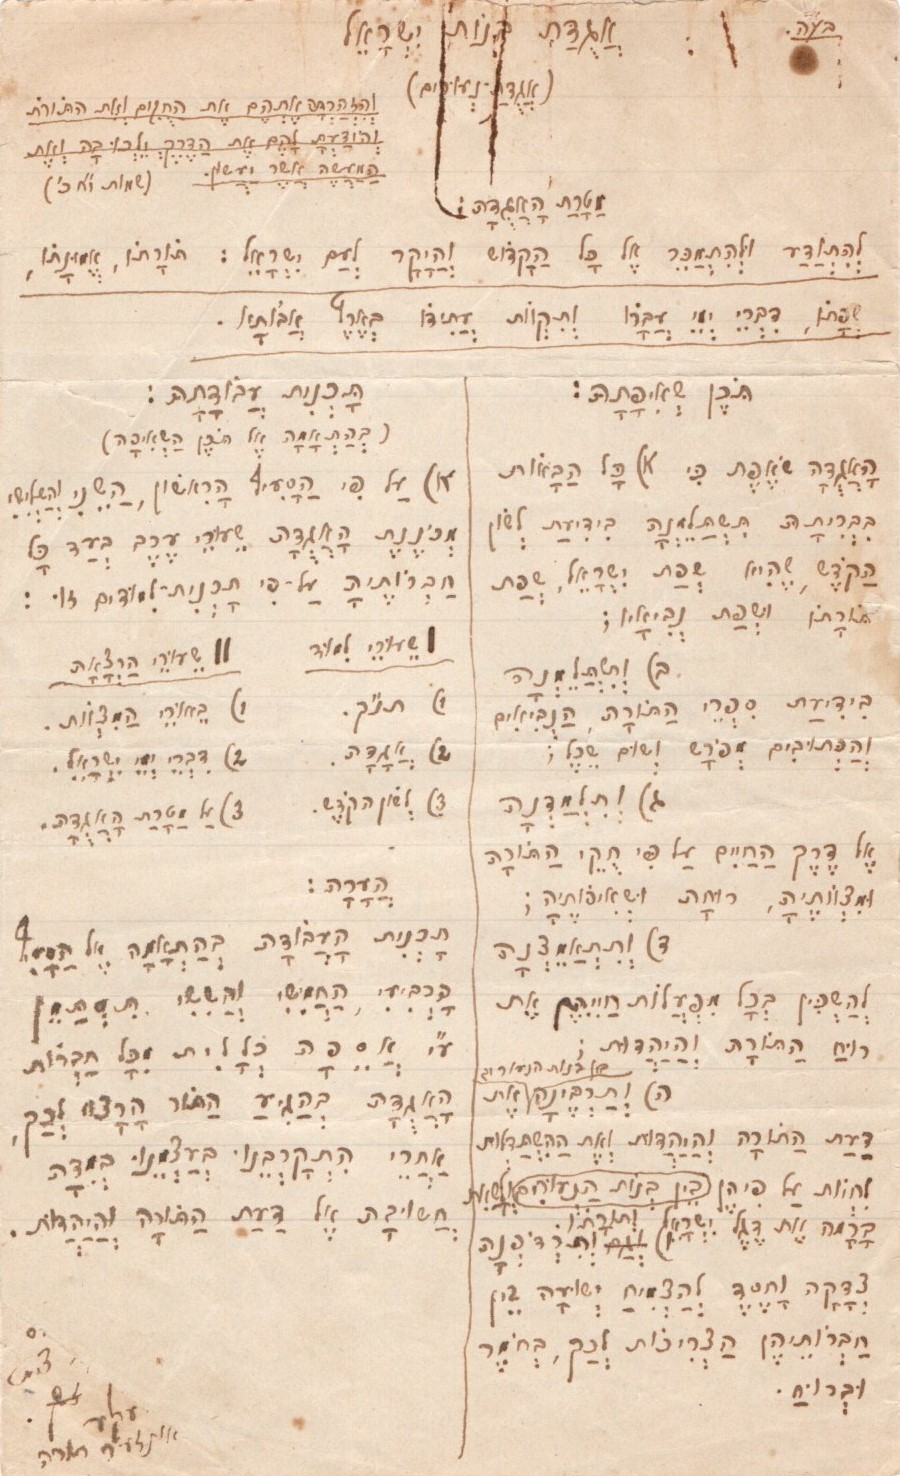 בע"ה.
אֲגֻדַּת בְּנוֹת יִשְׂרָאֵל
(אֲגֻדַּת-נְעוּרִים)
וְהִזְהַרְתָּה אֶתְהֶם אֶת הַחֻקִּים וְאֶת הַתּוֹרֹת
וְהוֹדַעְתָּ לָהֶם אֶת הַדֶּרֶךְ יֵלְכוּ בָהּ וְאֶת
הַמַּעֲשֶׂה אֲשֶׁר יַעֲשׂוּן.
(שמות י"ח כ')
מַטְּרַת הָאֲגֻדָּה:
לְהִתְוַדַּע וּלְהִתְמַכֵּר אֶל כָּל הַקָּדוֹשׁ וְהַיָּקָר לְעַם יִשְׂרָאֵל: תּוֹרָתוֹ, אֱמוּנָתוֹ,
שְׂפָתוֹ, דִּבְרֵי יְמֵי עֲבָרוֹ וְתִקְוֹת עֲתִידוֹ בְּאֶרֶץ אֲבוֹתָיו.
תֹּכֶן שְׁאִיפָתָהּ:
הָאֲגֻדָּה שׁוֹאֶפֶת כִּי א) כָּל הַבָּאוֹת
בִּבְרִיתָהּ תִּשְׁתַּלֵּמְנָה בִּידִיעַת לְשׁוֹן
הַקֹּדֶשׁ, שֶׁהִיא שְׂפַת יִשְׂרָאֵל, שְׂפַת
תּוֹרָתוֹ וּשְׂפַת נְבִיאָיו;
ב) וְתִשְׁתַּלֵּמְנָה
בִּידִיעַת סִפְרֵי הַתּוֹרָה, הַנְּבִיאִים
וְהַכְּתוּבִים מְפֹרָשׁ וְשׂוֹם שֵׂכֶל;
ג) וְתִלְמַדְנָה
אֶל דֶּרֶךְ הַחַיִּים עַל פִּי חֻקֵּי הַתּוֹרָה
וּמִצְוֹתֶיהָ, רוּחָהּ וּשְׁאִיפוֹתֶיהָ;
ד) וְתִתְאַמֵּצְנָה
לְהַשְׁכִּין בְּכָל מִפְעֲלוֹת חַיֵּיהֶן אֶת
רוּחַ הַתּוֹרָה וְהַיַּהֲדוּת;
בין בנות הנעורים
ה) וְתַרְבֶּינָה אֶת
דַּעַת הַתּוֹרָה וְהַיַּהֲדוּת וְאֶת הַהִשְׁתַּדְּלוּת
לִחְיוֹת עַל פִּיהֶן בֵּין בְּנוֹת הַנְּעוּרִים וְלָשֵׂאת
בָּרָמָה אֶת דֶּגֶל יִשְׂרָאֵל וְתוֹרָתוֹ.
ו) וְגַם וְתִרְדֹּפְנָה
צְדָקָה וָחֶסֶד לְהַצְמִיחַ יְשׁוּעָה בֵּין
חַבְרוֹתֵיהֶן הַצְּרִיכוֹת לְכָךְ, בְּחֹמֶר
וּבְרוּחַ.
תָּכְנִית עֲבוֹדָתָהּ:
(בְּהַתְאָמָה אֶל תֹּכֶן הַשְּׁאִיפָה)
א) עַל פִּי הַסָּעִיף הָרִאשׁוֹן, הַשֵּׁנִי וְהַשְּׁלִישִׁי
מְכוֹנֶנֶת הָאֲגֻדָּה שִׁעוּרֵי עֶרֶב בְּעַד כָּל
חַבְרוֹתֶיהָ עַל-פִּי תָּכְנִית-לִמּוּדִים זוֹ:
I שִׁעוּרֵי לִמּוּד
II שִׁעוּרֵי הַרְצָאָה
1) תנ"ך.
1) בֵּאוּרֵי הַמִּצְוֹת.
2) אֲגָדָה.
2) דִּבְרֵי יְמֵי יִשְׂרָאֵל.
3) לְשׁוֹן הַקֹּדֶשׁ.
3) עַל מַטְּרַת הָאֲגֻדָּה.
הֶעָרָה:
תָּכְנִית הָעֲבוֹדָה בְּהַתְאָמָה אֶל הַסָּעִיף
הָרְבִיעִי, הַחֲמִישִׁי וְהַשִּׁשִּׁי תְּסֻמַּן
ע"י אֲסֵפָה כְּלָלִית מִכָּל חַבְרוֹת
הָאֲגֻדָּה בְּהַגִּיעַ הַתּוֹר הָרָצוּי לְכָךְ,
אַחֲרֵי הִתְקָרְבֵנוּ בְּעַצְמֵנוּ בְּמִדָּה
חֲשׁוּבָה אֶל דַּעַת הַתּוֹרָה וְהַיַּהֲדוּת.